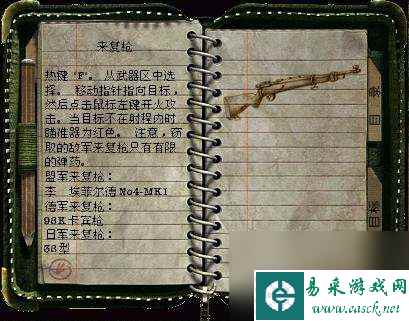 来复枪
热键 "F"。从武器区中选
择。 移动指针指向目标，
然后点击鼠标左键开火攻
击。当目标不在射程内时
瞄准器为红色。 注意，窃
取的敌军来复枪只有有限
的弹药。
盟军来复枪：
李 埃菲尔德 No4-MK1
德军来复枪：
98K卡宾枪
日军来复枪：
38型
目录
目标
易采游戏网
www.easck.net